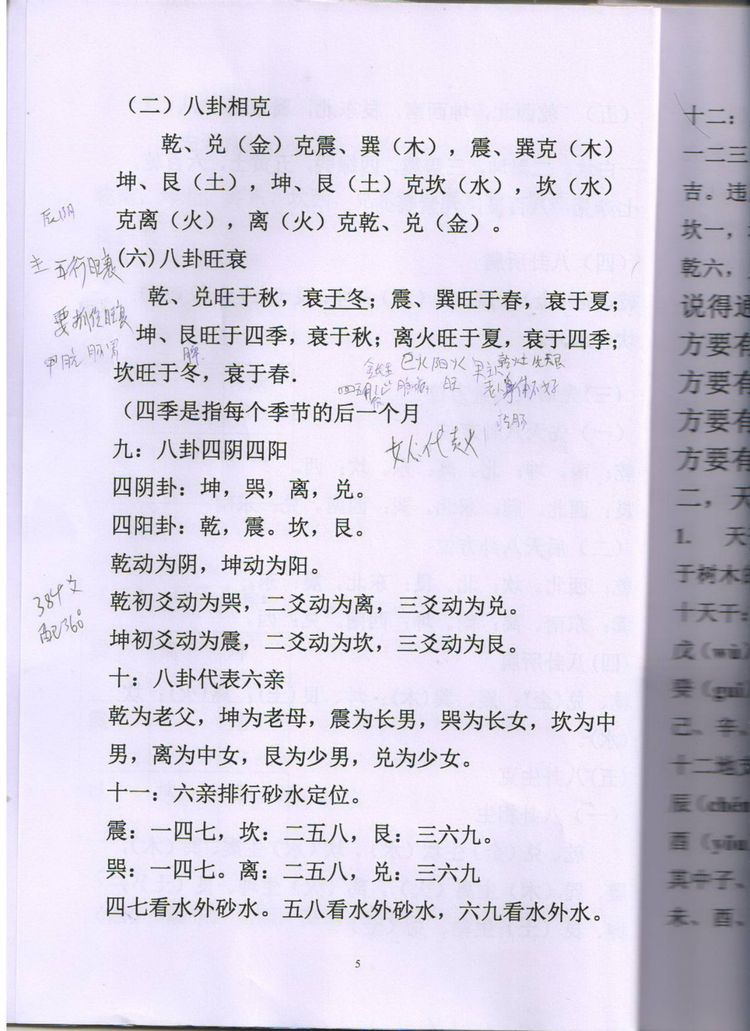 （二）八卦相克
乾、兑（金）克震、巽（木），震、巽克（木）
坤、艮（土），坤、艮（土）克坎（水），坎（水）
克离（火），离（火）克乾、兑（金）。
(六)八卦旺衰
乾、兑旺于秋，衰于冬；震、巽旺于春，衰于夏；
坤、艮旺于四季，衰于秋；离火旺于夏，衰于四季；
坎旺于冬，衰于春．
（四季是指每个季节的后一个月
九：八卦四阴四阳
四阴卦：坤，哭，离，兑。
四阳卦：乾，震。坎，艮。
乾动为阴，坤动为阳。
乾初爻动为哭，二爻动为离，三爻动为兑。
坤初爻动为震，二爻动为坎，三爻动为艮。
384爻
配360°
十：八卦代表六亲
乾为老父，坤为老母，震为长男，哭为长女，坎为中
男，离为中女，艮为少男，兑为少女。
十一：六亲排行砂水定位。
震：一四七，坎：二五八，艮：三六九。
哭：一四七。离：二五八，兑：三六九
四七看水外砂水。五八看水外砂水，六九看水外水。
5
十二：
一二三
吉。违
坎一，
乾六，
说得
方要有
方要有
方要有
方要有
二，天
1. 天
于树木
十天干：
戊（wù）
癸（guǐ）
己、辛、
十二地支
辰（chén
酉（yǒu
其中子、
未、酉、